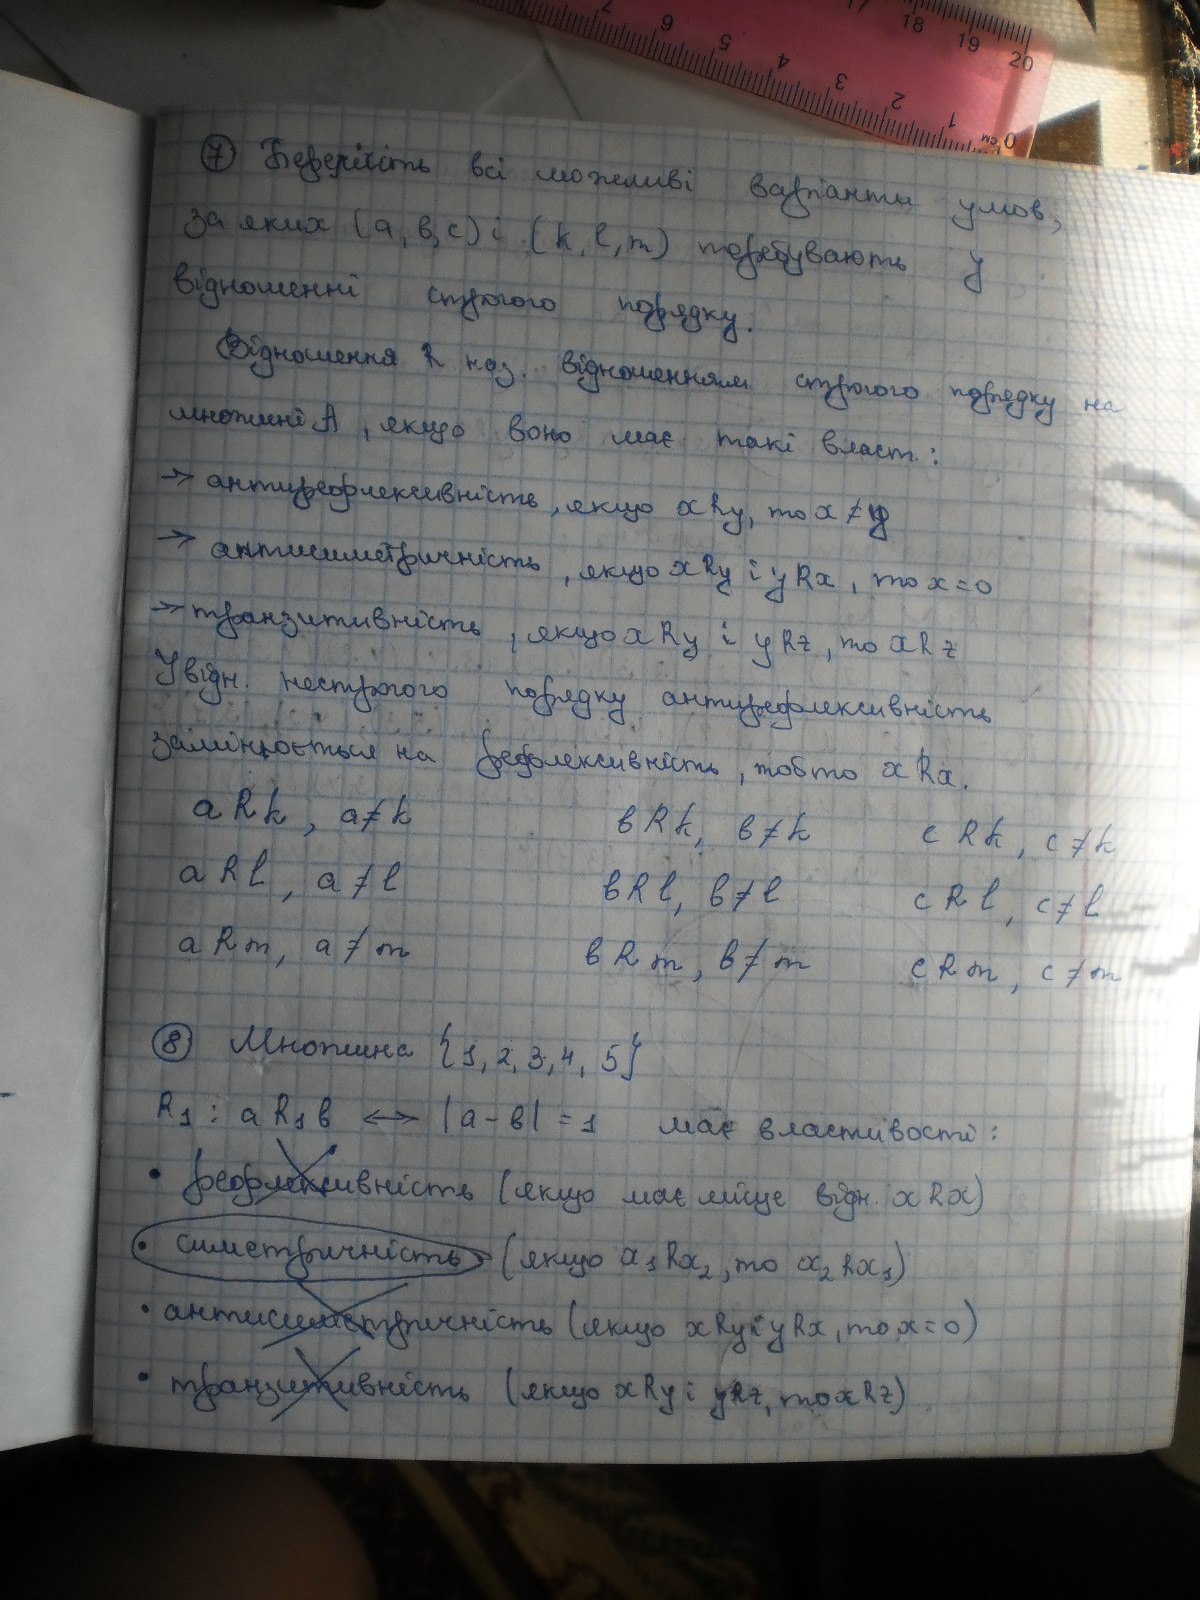 7 6 5 4 3 2 1 0 см
17 18 19 20
⑦ Беберіть всі можливі варіанти умов,
за яких (a, в, c) і (k, l, m) перебувають у
відношенні строгого порядку.
Відношення R наз. відношенням строгого порядку на
множині A, якщо воно має такі власт.:
→ антирефлексивність, якщо xRy, то x ≠ y
→ антисиметричність, якщо xRy і yRx, то x=0
→ транзитивність, якщо xRy і yRz, то xRz
У відн. нестрогого порядку антирефлексивність
замінюється на рефлексивність, тобто xRx.
aRk, a≠k вRk, в≠k cRk, c≠k
aRl, a≠l вRl, в≠l cRl, c≠l
aRm, a≠m вRm, в≠m cRm, c≠m
⑧ Множина {1, 2, 3, 4, 5}
R1 : aR1в ↔ |a-в| = 1 має властивості:
• рефлексивність (якщо має місце відн. xRx)
• симетричність (якщо x1Rx2, то x2Rx1)
• антисиметричність (якщо xRy і yRx, то x=0)
• транзитивність (якщо xRy і yRz, то xRz)